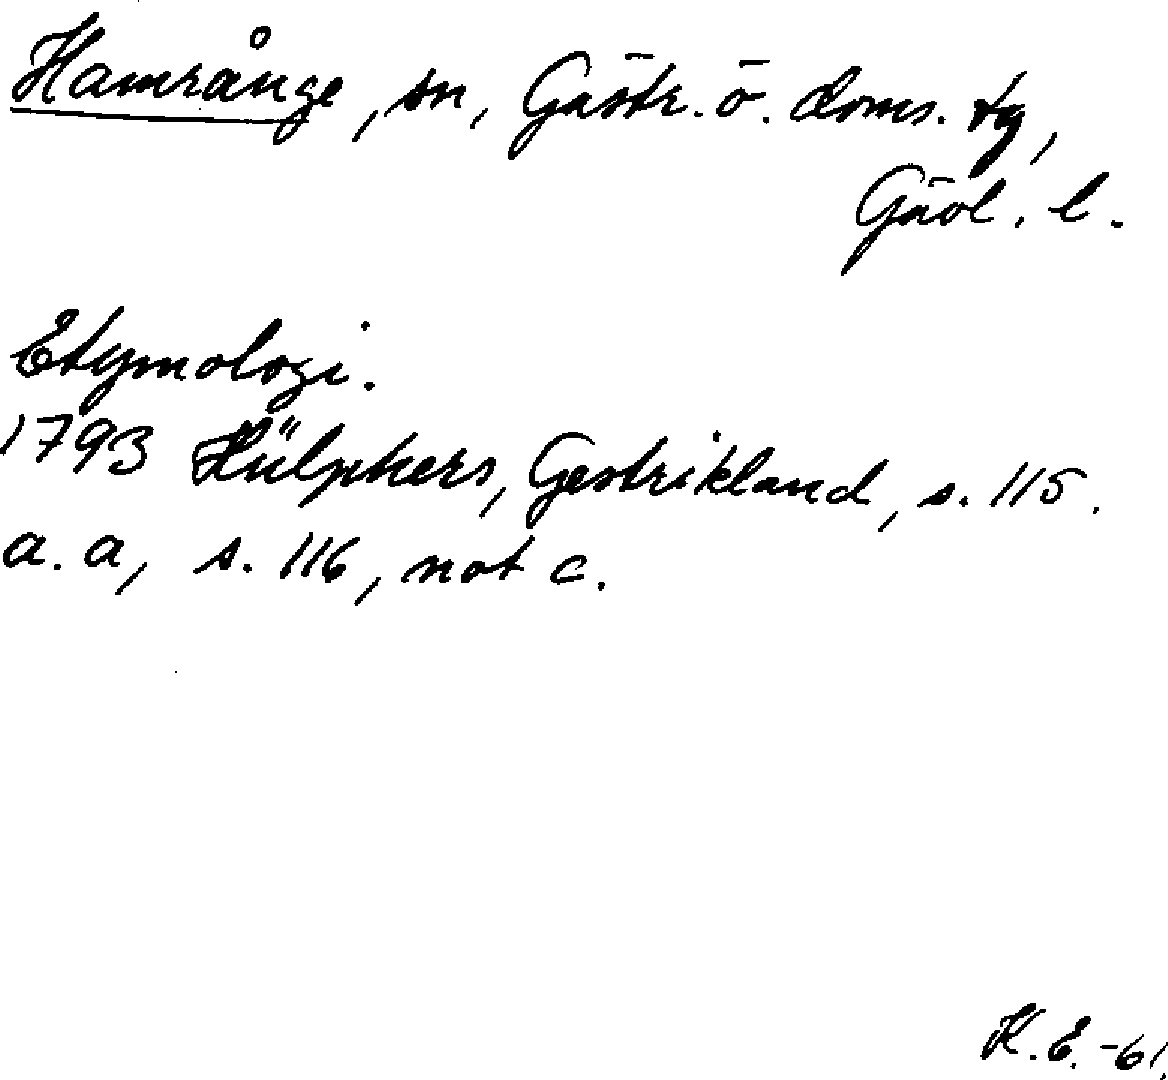 Hamrånge, sn, Gästr. ö. doms. tg,
Gävl. l.
Etymologi.
1793 Hülphers, Gestrikland, s. 115.
a. a, s. 116, not c.
K.E. -61.